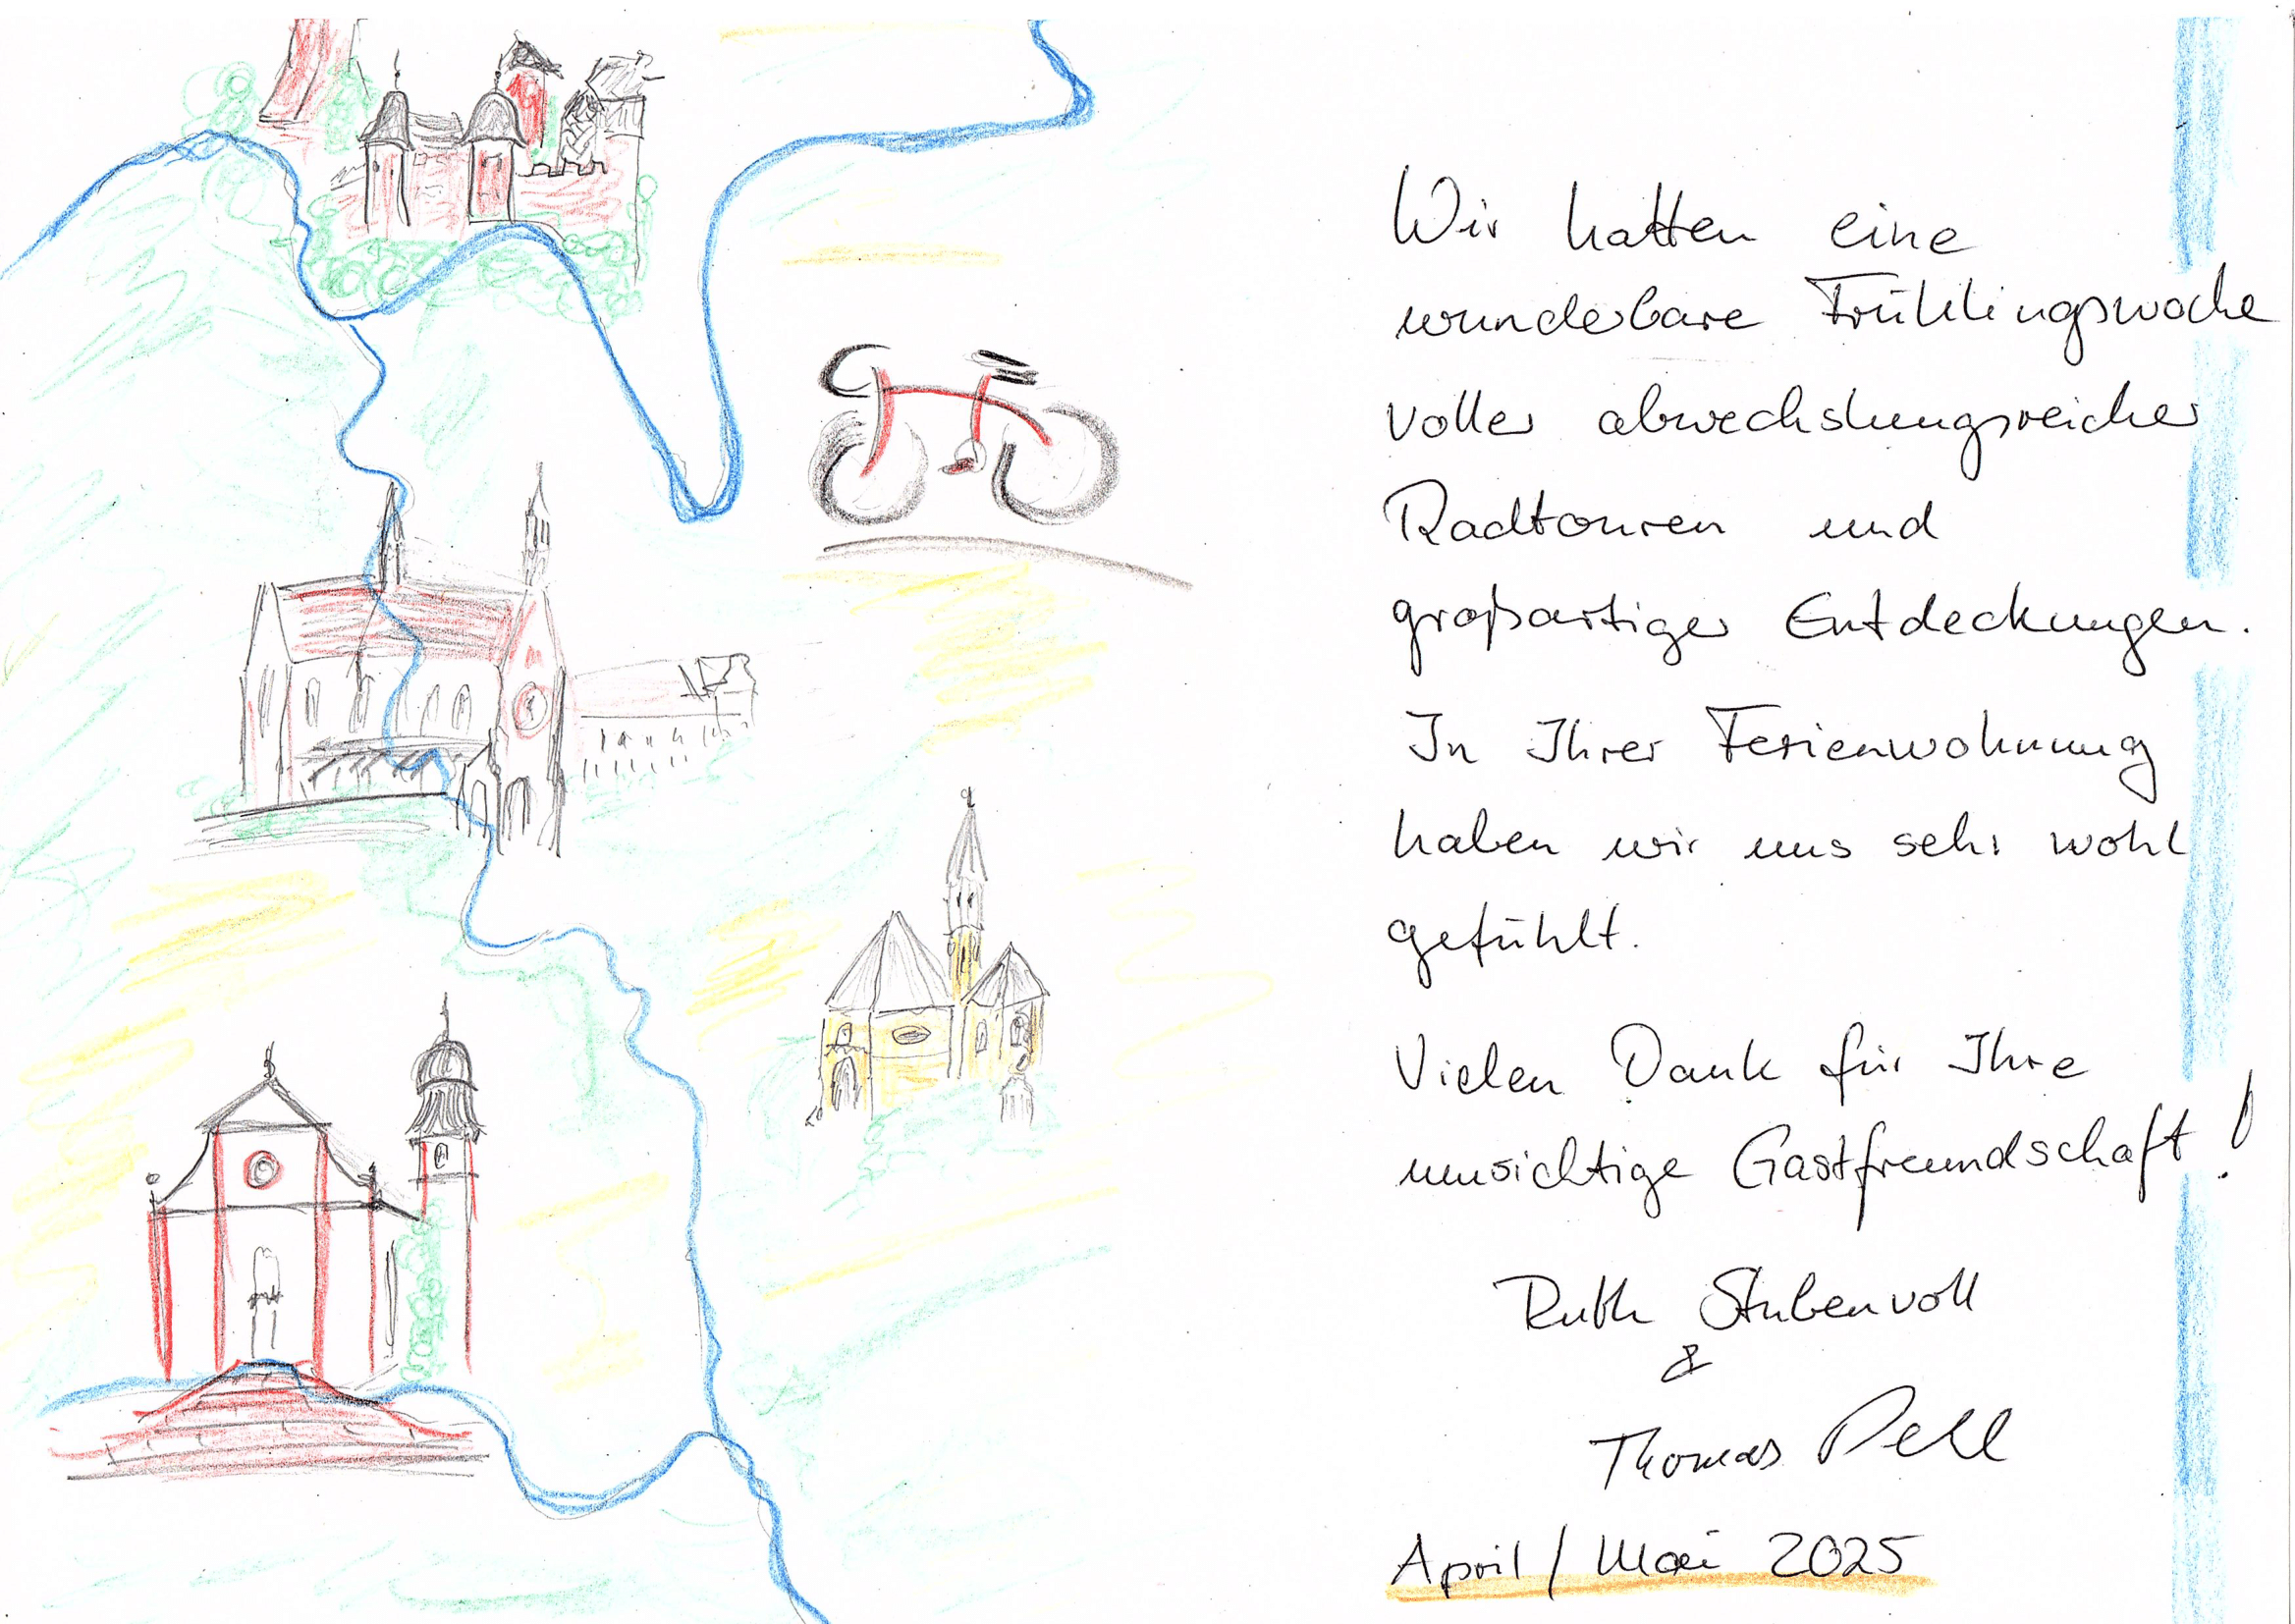 Wir hatten eine
wunderbare Frühlingswoche
voller abwechslungsreicher
Radtouren und
großartiger Entdeckungen.
In Ihrer Ferienwohnung
haben wir uns sehr wohl
gefühlt.
Vielen Dank für Ihre
umsichtige Gastfreundschaft!
Ruth Stubenvoll
&
Thomas
April / Mai 2025